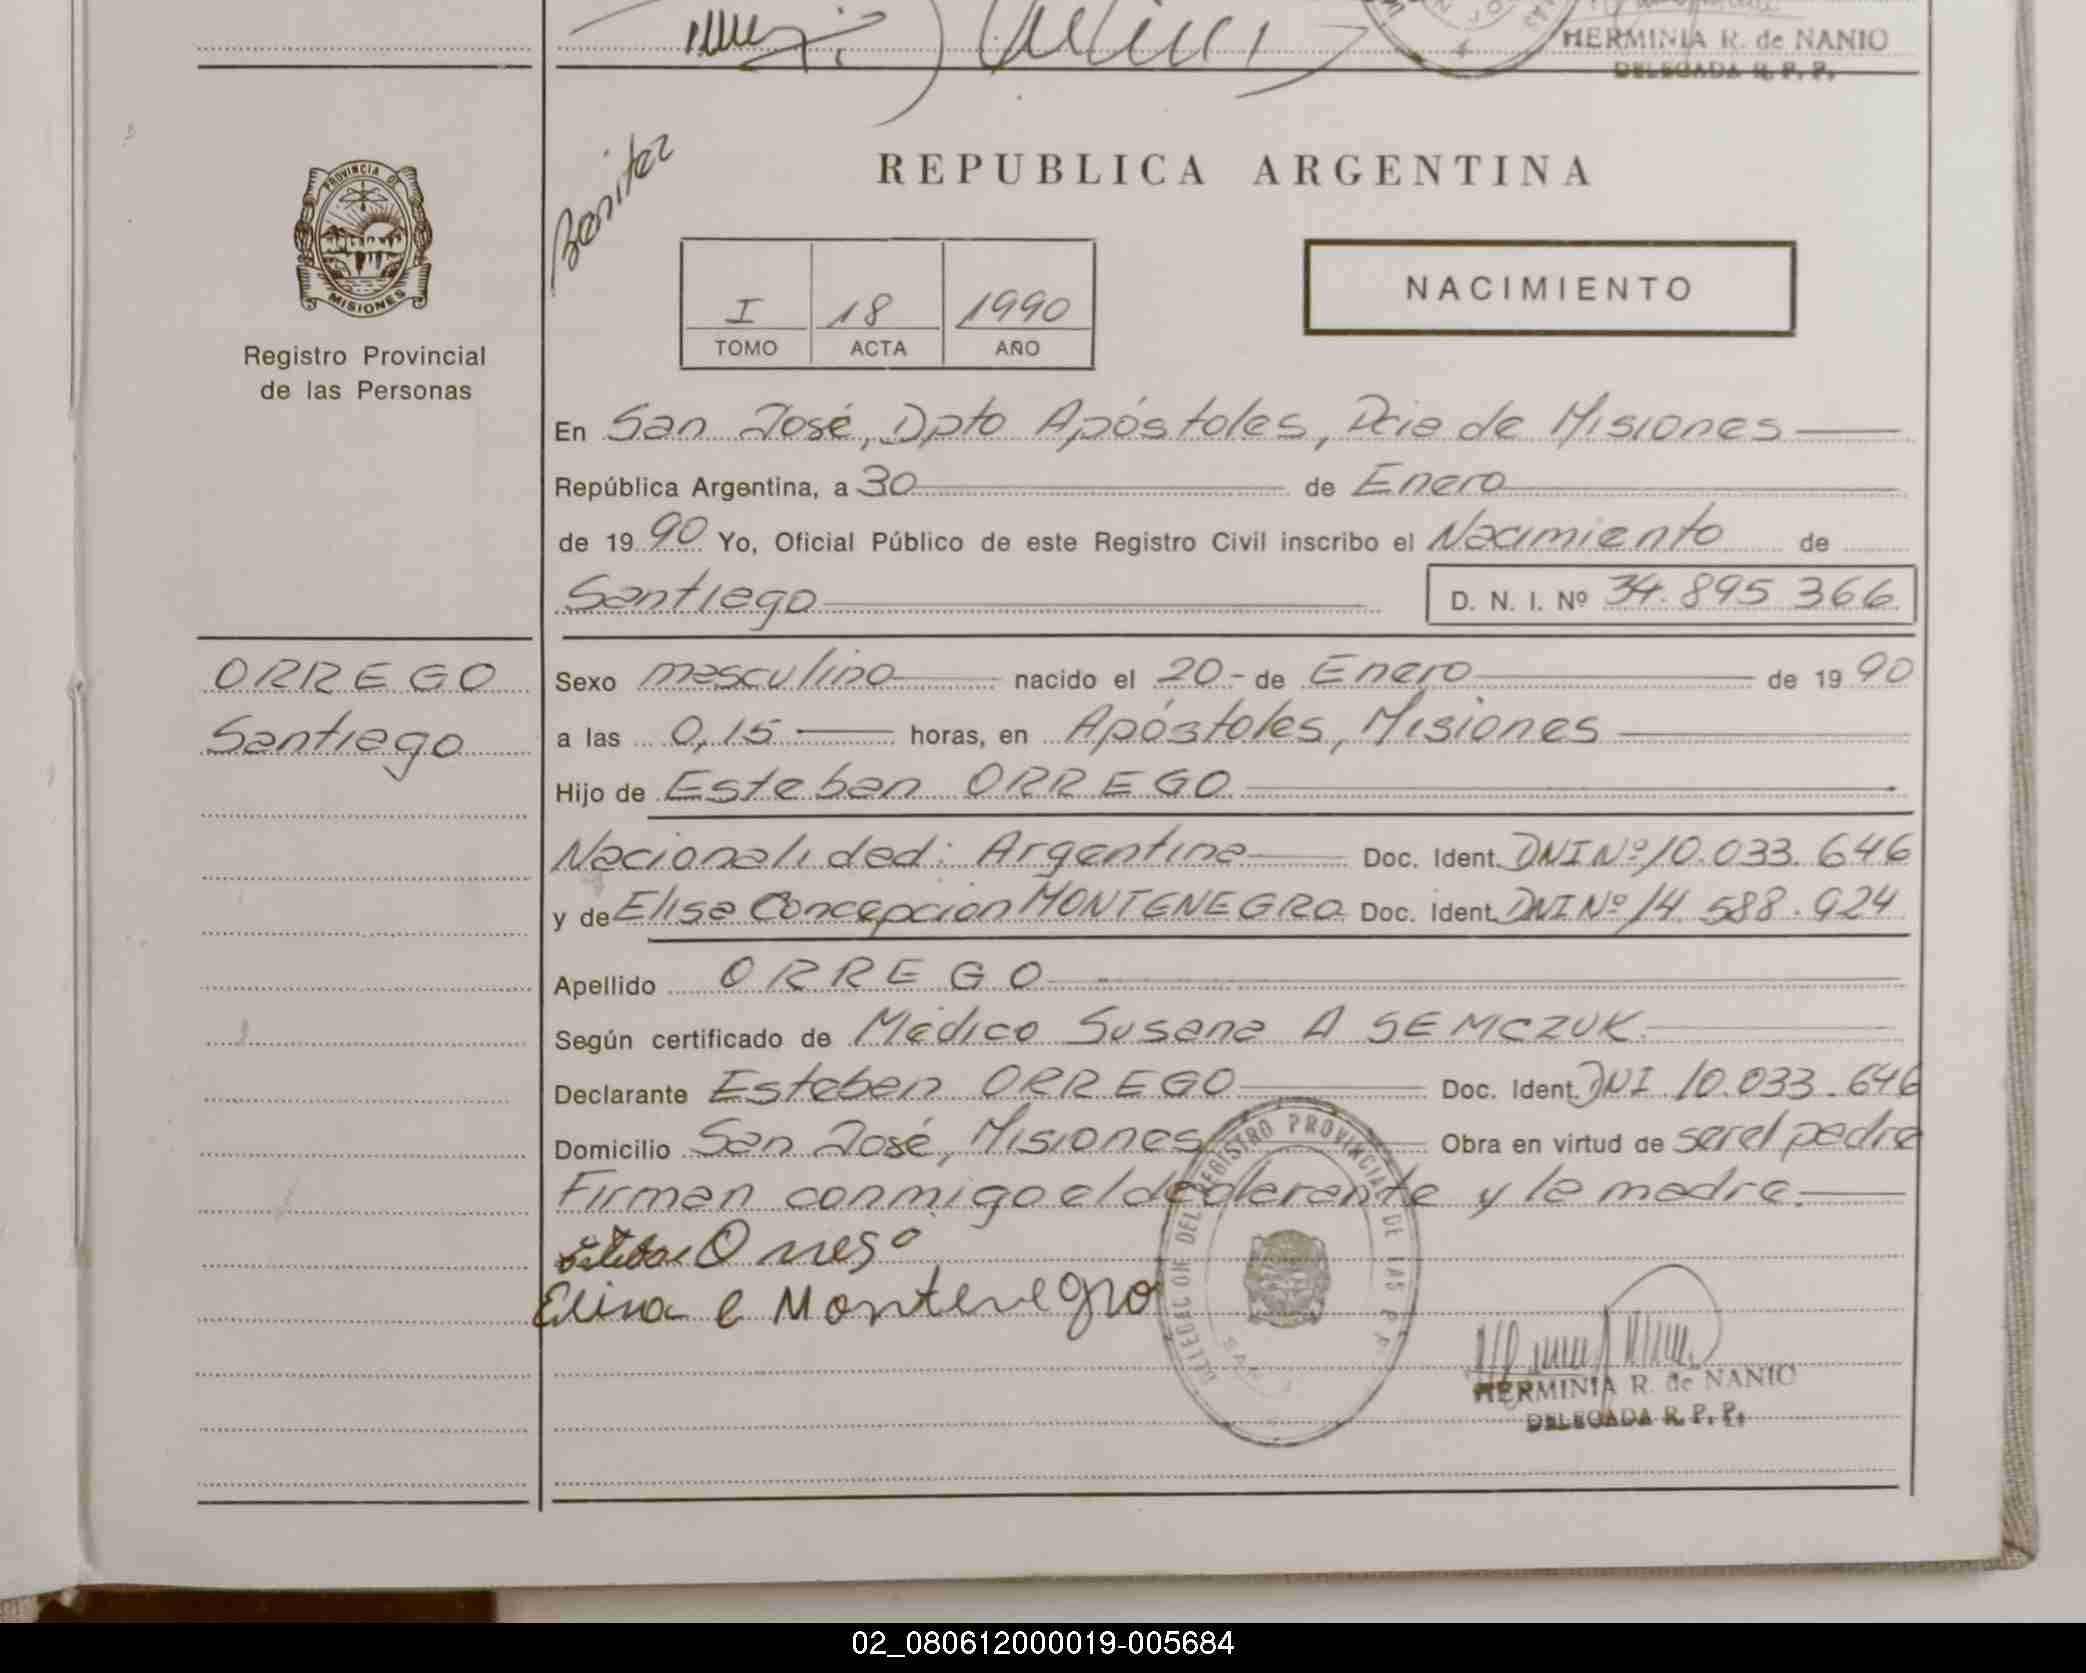 HERMINIA R. de NANIO
DELEGADA R. P. P.
Benitez
PROVINCIA DE
MISIONES
Registro Provincial
de las Personas
REPUBLICA ARGENTINA
I 18 1990
TOMO ACTA AÑO
NACIMIENTO
En San José, Dpto Apóstoles, Pcia de Misiones
República Argentina, a 30 de Enero
de 1990 Yo, Oficial Público de este Registro Civil inscribo el Nacimiento de
Santiago D. N. I. Nº 34.895 366
ORREGO
Santiago
Sexo masculino nacido el 20- de Enero de 1990
a las 0,15 horas, en Apóstoles, Misiones
Hijo de Esteban ORREGO
Nacionalidad: Argentina Doc. Ident. DNI Nº 10.033.646
y de Elisa Concepcion MONTENEGRO Doc. Ident. DNI Nº 14.588.924
Apellido ORREGO
Según certificado de Médico Susana A SEMCZUK
Declarante Esteban ORREGO Doc. Ident. DNI 10.033.646
Domicilio San José, Misiones Obra en virtud de ser el padre
Firman conmigo el declarante y la madre.
Orrego
Elisa C Montenegro
DEL REGISTRO PROVINCIAL DE LAS P P
HERMINIA R. de NANIO
DELEGADA R. P. P.
02_080612000019-005684